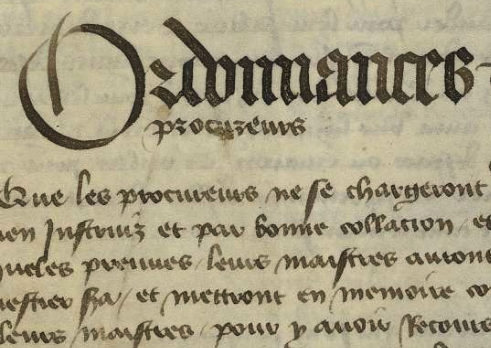 Ordonnances
procureurs
Que les procureurs ne se chargeront
ien Instruiz et par bonne collacion et
queles preuves leurs maistres auront
mestier sera et mettront en memoire co
leurs maistres pour y avoir Recours